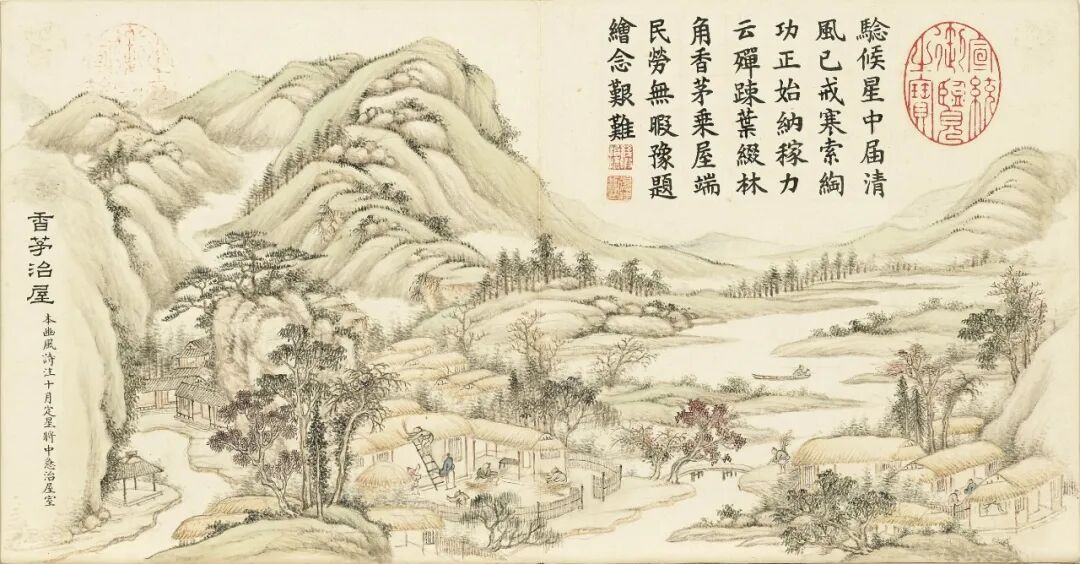 騐候星中届清
風已戒寒索綯
功正始納稼力
云殫踈葉綴林
角香茅乘屋端
民勞無暇豫題
繪念艱難
宣統
御覽
之寶
香茅治屋
本豳風詩注十月定星將中急治屋室